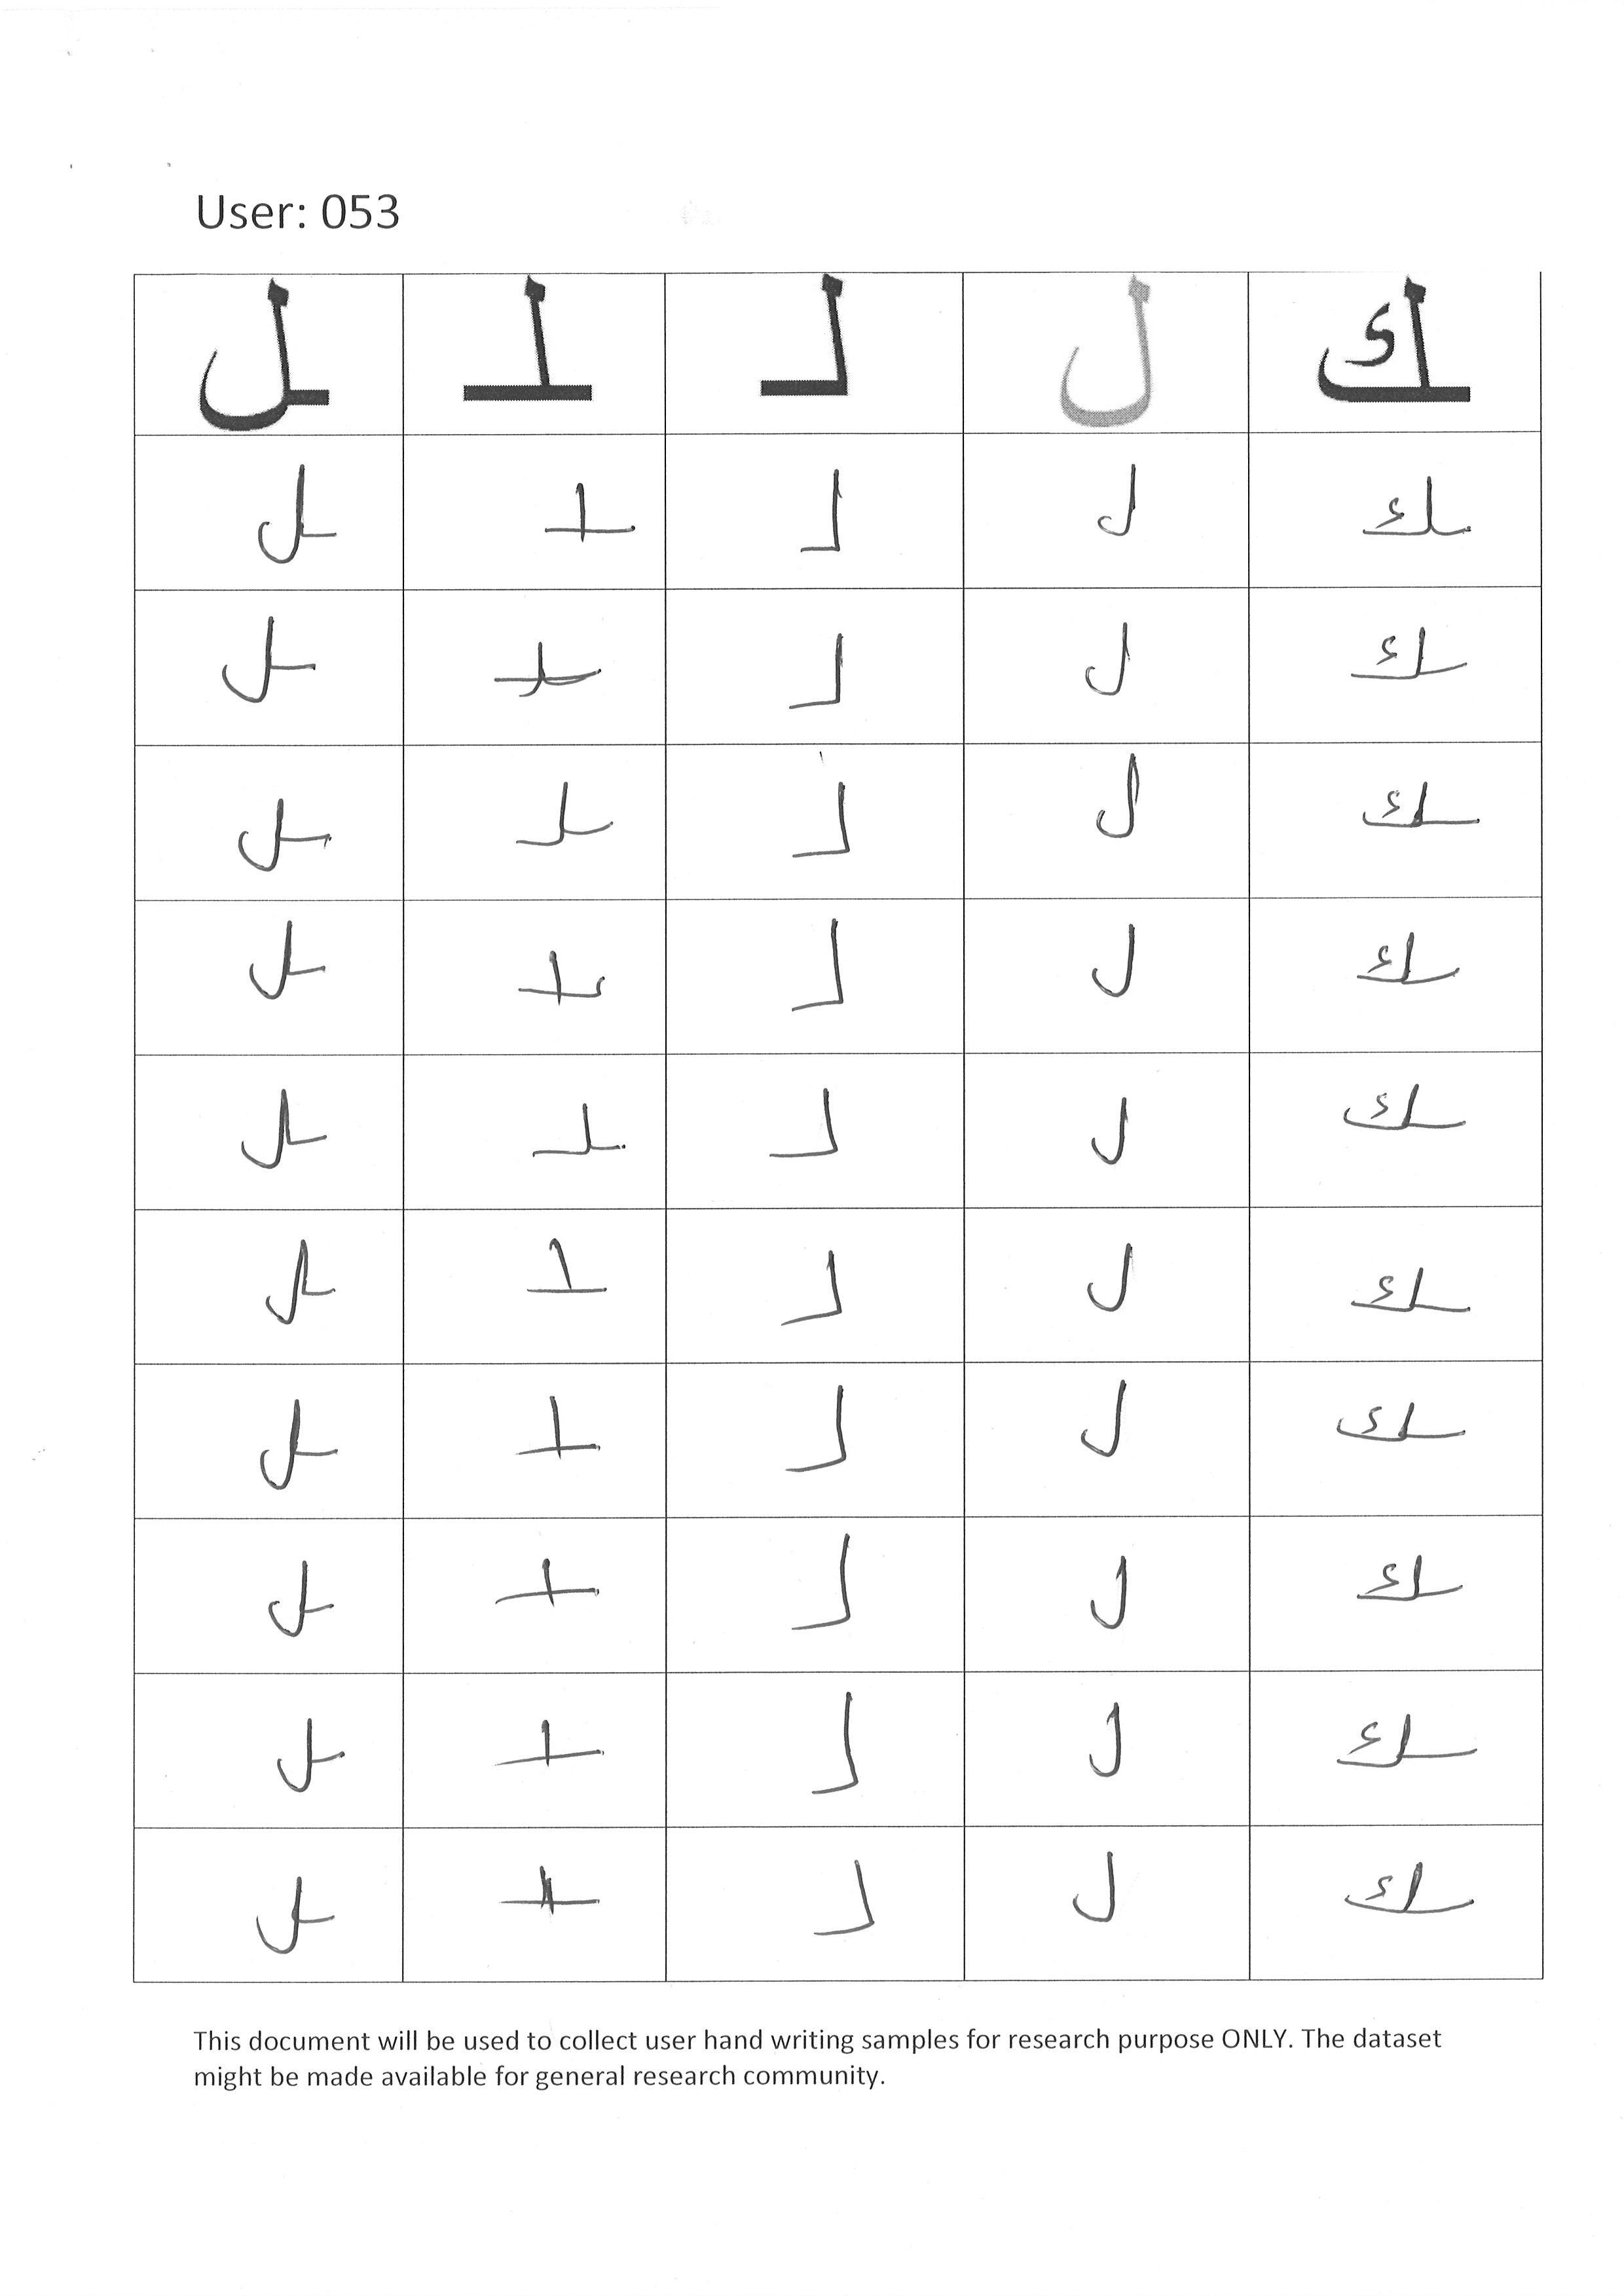 User: 053
ـل ـلـ لـ ل ـك
ـل ـلـ لـ ل ـك
ـل ـلـ لـ ل ـك
ـل ـلـ لـ ل ـك
ـل ـلـ لـ ل ـك
ـل ـلـ لـ ل ـك
ـل ـلـ لـ ل ـك
ـل ـلـ لـ ل ـك
ـل ـلـ لـ ل ـك
ـل ـلـ لـ ل ـك
ـل ـلـ لـ ل ـك
This document will be used to collect user hand writing samples for research purpose ONLY. The dataset
might be made available for general research community.